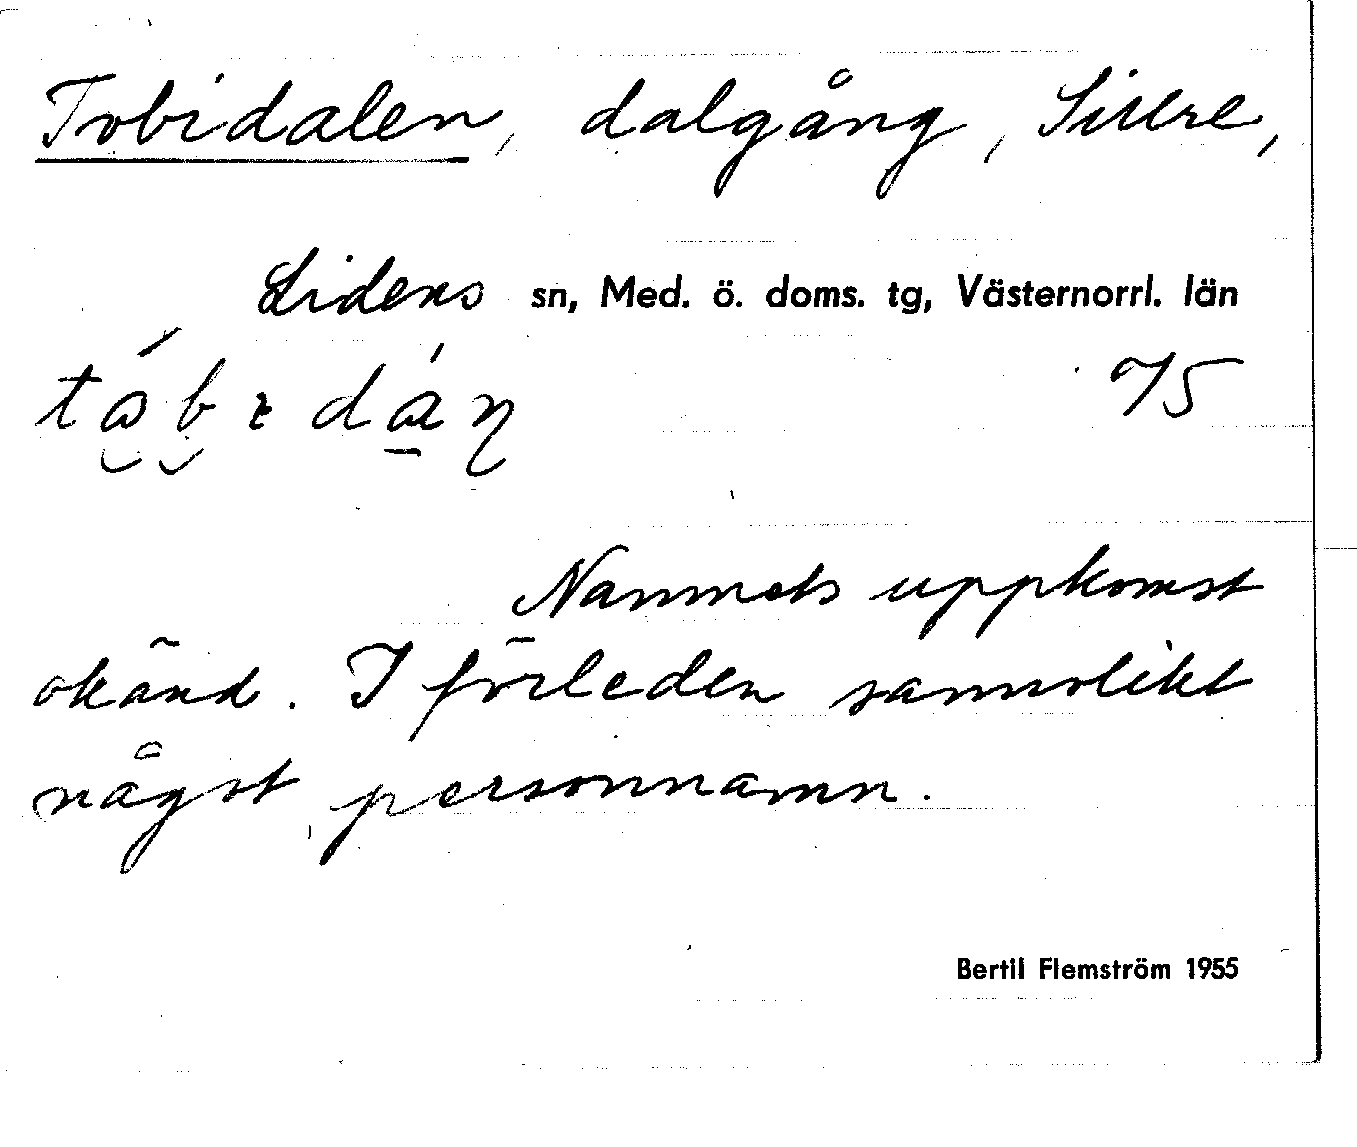 Tobidalen, dalgång, Sillre,
Lidens sn, Med. ö. doms. tg, Västernorrl. län
75
Namnets uppkomst
okänd. I förleden sannolikt
någst personnamn.
Bertil Flemström 1955